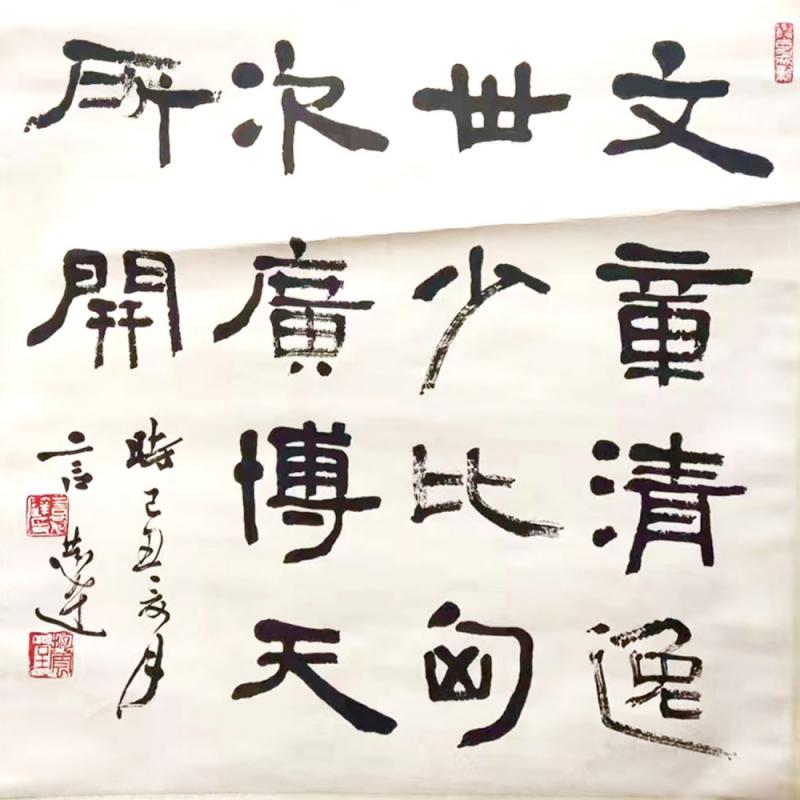 文章清逸
世少比匈
次廣博天
所開
時己丑亥月
言恭達